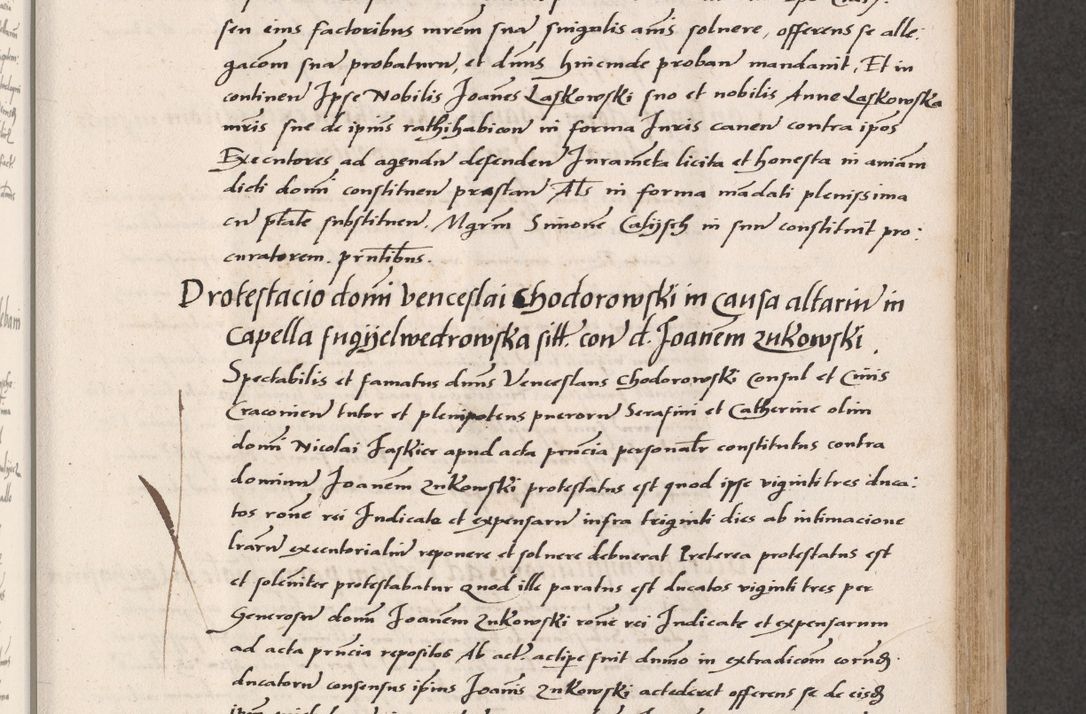 seu eius factoribus mrem sua singulis annis soluere, offerens se alle:
gacom sua probaturu, et duns hincinde proban mandauit, Et in
continen Ipse Nobilis Joanes Laskowski suo et nobilis Anne Laskowska
mris sue de ipius rathihabicon in forma Juris canen contra ipos
Executores ad agendu defenden Jurameta licita et honesta in aniam
dicti domi constituen prestan Als in forma madati plenissima
cu ptate substituen. Mgrm Simone Cahijsch in suu constituit pro:
curatorem. prntibus.
Protestacio domi Venceslai Chodorowski in causa altariu in
Capella fugijelwedrowska sitt. con d. Joanem Zukowski.
Spectabilis et famatus duns Venceslaus Chodorowski Consul et Ciuis
Craconien tutor et plenipotens pueroru Serafini et Catherine olim
domi Nicolai Jaskier apud acta prncia personalr constitutus contra
dominu Joanem Zukowski protestatus est quod ipse viginti tres duca:
tos rone rei Judicate et expensaru infra triginti dies ab intimacione
lraru executorialiu reponere et soluere debuerat Preterea protestatus est
et soleniter protestabatur Quod ille paratus est ducatos viginti tres per
Generosu domi Joanem Zukowski rone rei Judicate et expensarum
ad acta prncia repositos Ab act. actipe fuit dumo in extradicom eorund.
ducatoru consensus ipius Joanis Zukowski accederet offerens se de eisd